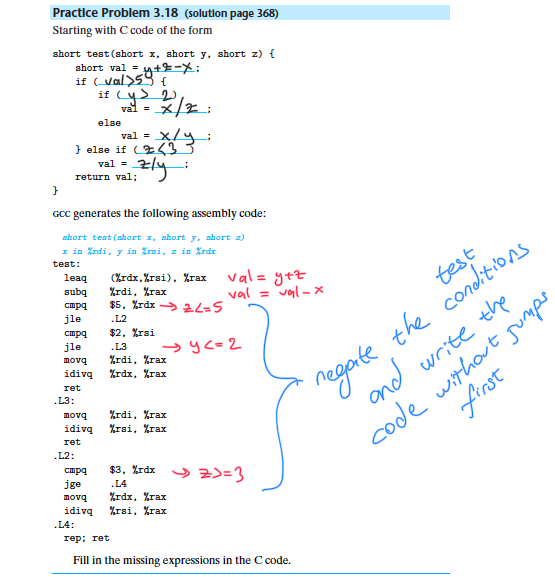 Practice Problem 3.18 (solution page 368)
Starting with C code of the form
short test(short x, short y, short z) {
short val = y+z-x ;
if ( val>5 ) {
if ( y > 2 )
val = x/z ;
else
val = x/y ;
} else if ( z<3 )
val = z/y ;
return val;
}
GCC generates the following assembly code:
short test(short x, short y, short z)
x in %rdi, y in %rsi, z in %rdx
test:
leaq (%rdx,%rsi), %rax val = y+z
subq %rdi, %rax val = val-x
cmpq $5, %rdx → z<=5
jle .L2
cmpq $2, %rsi
jle .L3 → y<=2
movq %rdi, %rax
idivq %rdx, %rax
ret
.L3:
movq %rdi, %rax
idivq %rsi, %rax
ret
.L2:
cmpq $3, %rdx → z>=3
jge .L4
movq %rdx, %rax
idivq %rsi, %rax
.L4:
rep; ret
negate the test conditions
and write the
code without jumps
first
Fill in the missing expressions in the C code.